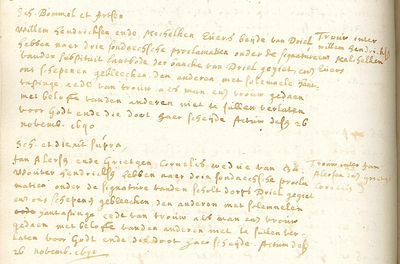 Sch. Bommel et Artsen
Willem Hendricksen ende Mechelken Evers beyde van Driel
hebben naer drie sondaechsche proclamatien onder de signature
vanden substituit Lantbode der bancke van Driel
ons schepenen gebleecken den anderen met solemnele
eede van trouw als man en vrouw gedaen
met belofte vanden anderen niet te sullen verlaten
voor Godt ende die doot haer scheyde Actum desen 26
novemb. 1690
Trouw inter
willem Hendricks
Mechelken
Evers
Sch. et die ut supra,
Jan Alersen ende Grietgen Cornelis wed:e van
Wouter Hendricks hebben naer drie sondaechsche procla
matien onder de signature vanden scholt dorps Driel
ons schepens gebleecken den anderen met solemnelen
eede van trouw als man en vrouw
gedaen met belofte vanden anderen niet te sullen ver-
laten voor Godt ende die doot haer scheyde. Actum desen
26 novemb. 1690
Trouw inter Jan
Alersen en Grietgen
Cornelis